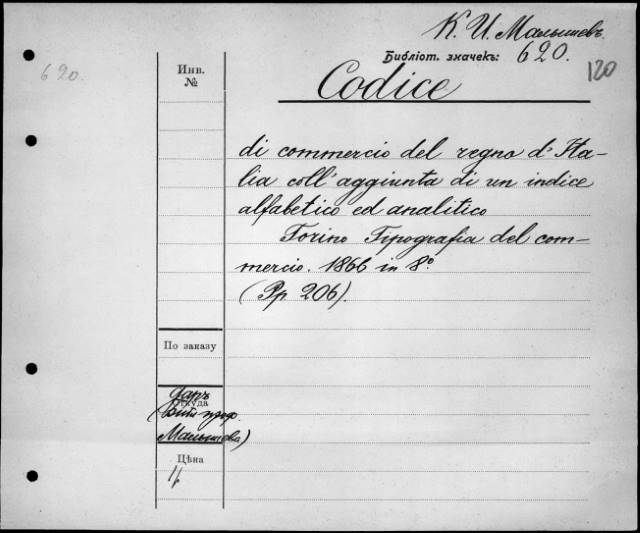 К. И. Малышевъ.
Библіот. значекъ: 620.
120
620.
Инв.
№
Codice
di commercio del regno d'Ita-
lia coll'aggiunta di un indice
alfabetico ed analitico
Torino Tipografia del com-
mercio. 1866 in 8º.
(Pp 206).
По заказу
Даръ
Откуда
(Библ. проф.
Малышева)
Цѣна